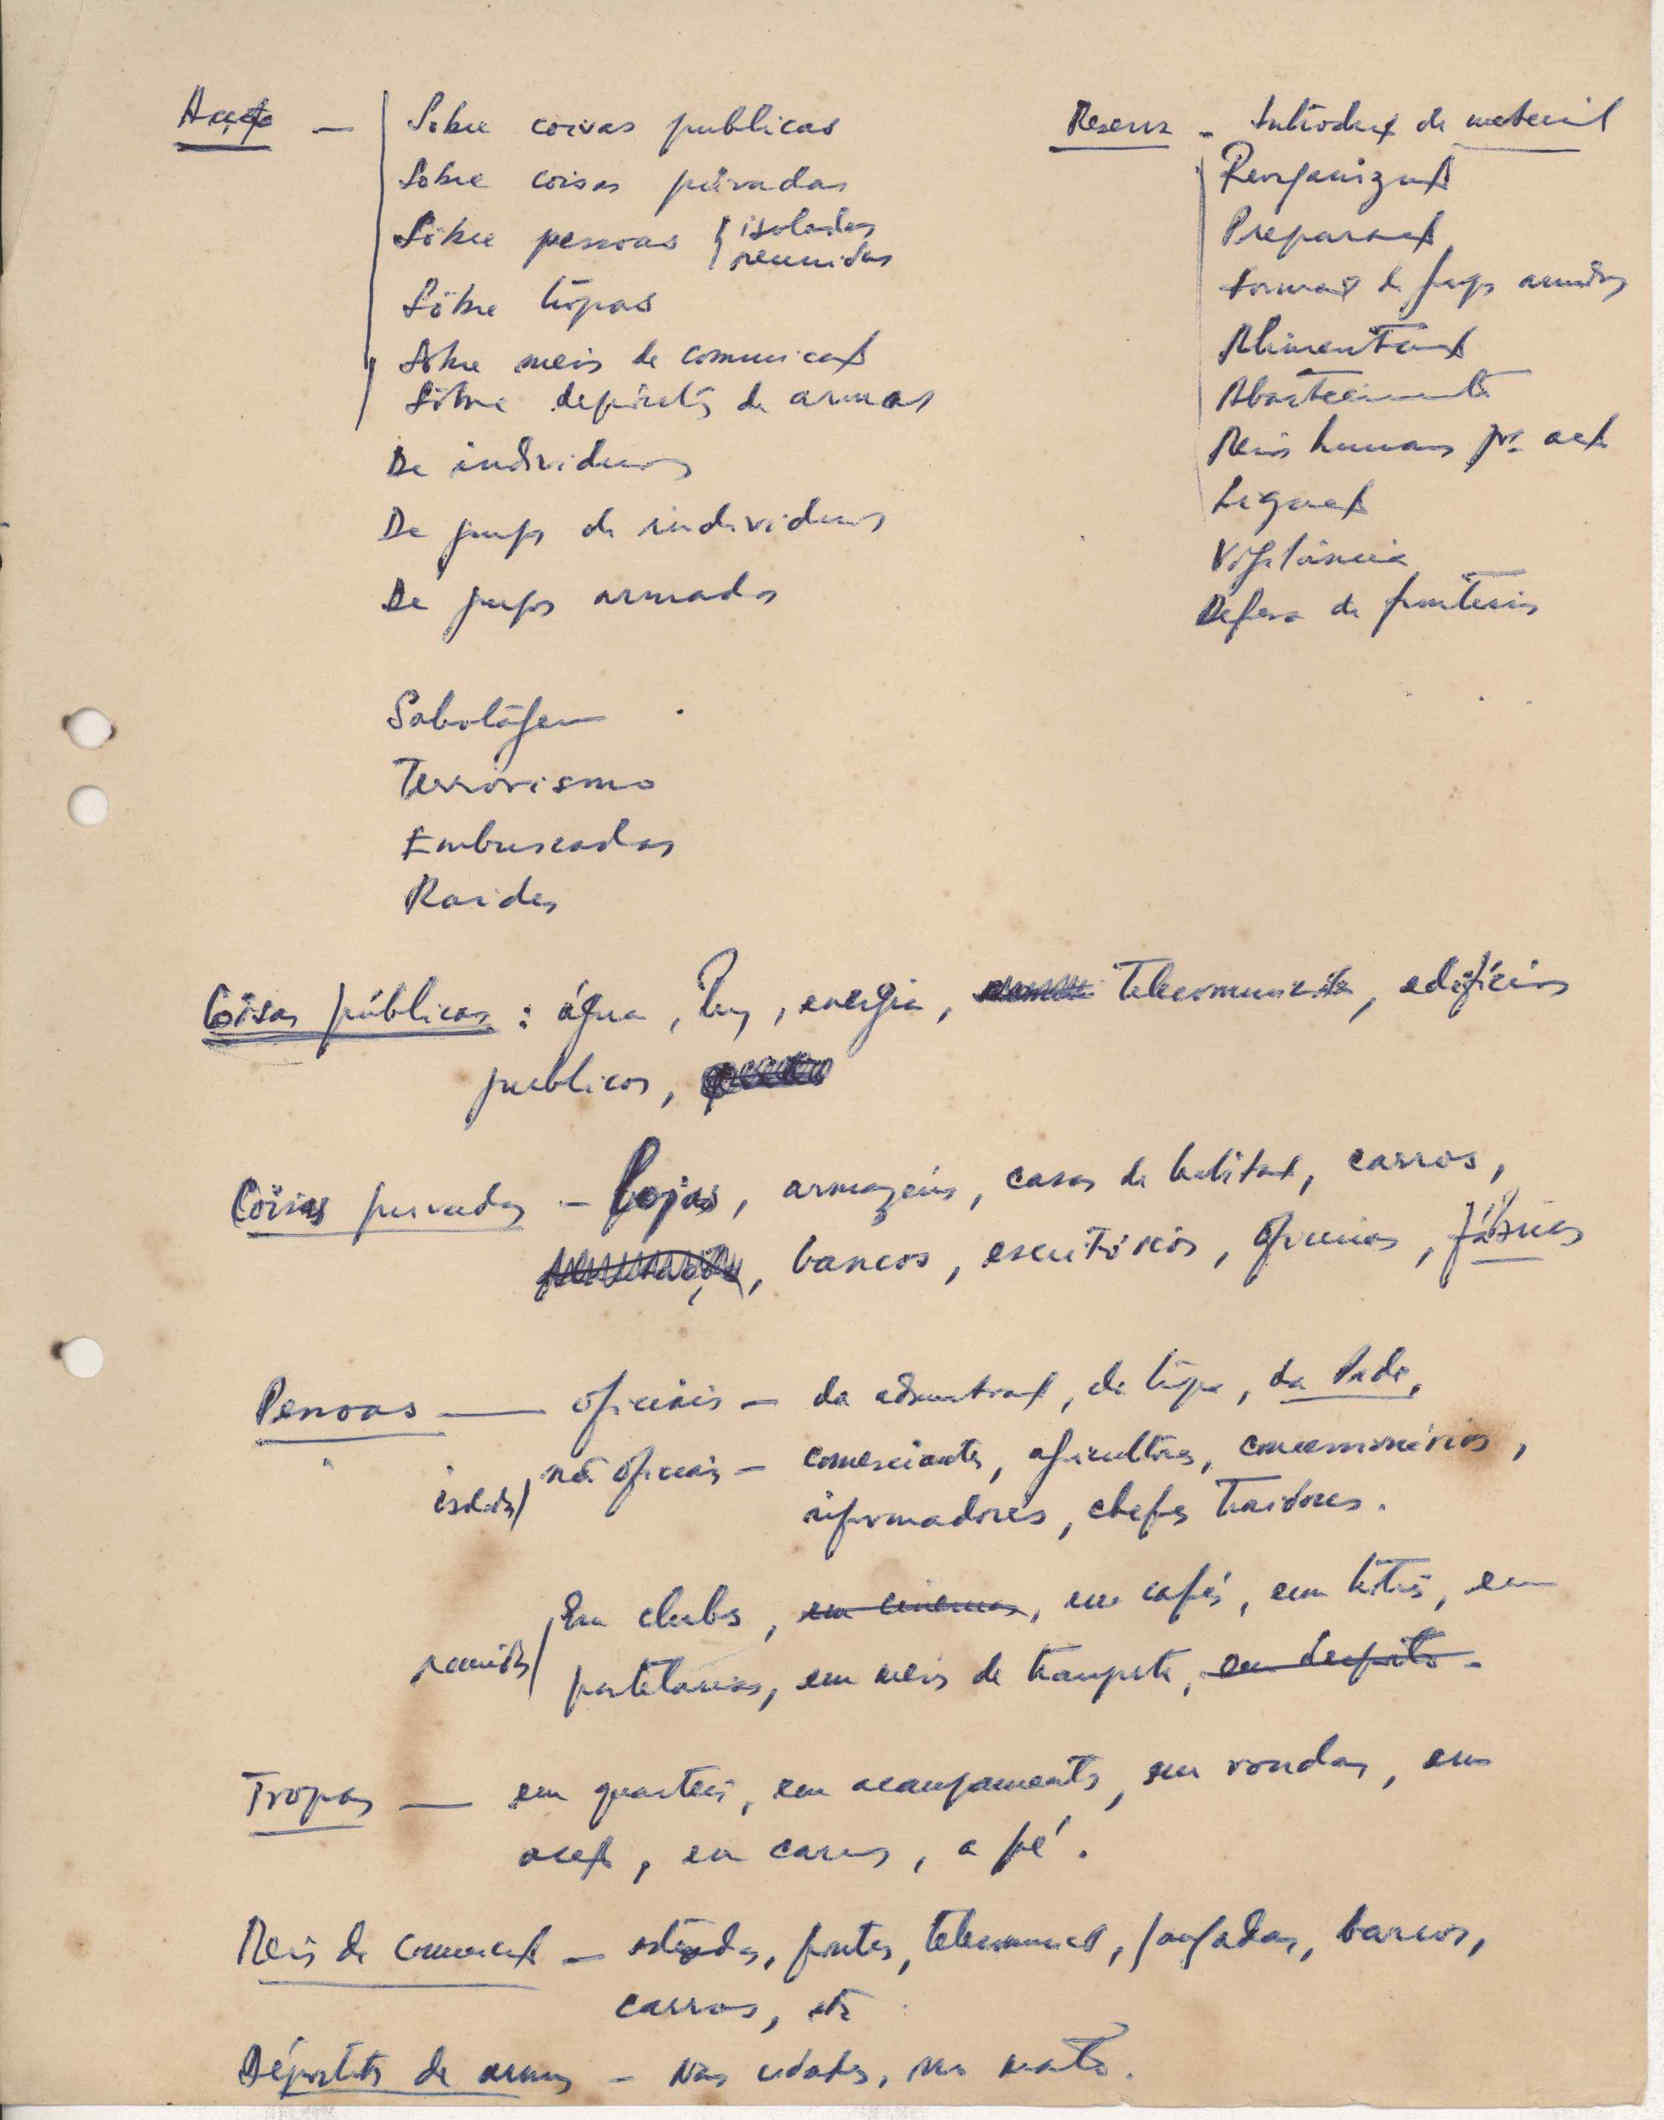 Acção —
Sobre coisas publicas
Sobre coisas privadas
Sôbre pessoas { isoladas
reunidas
Sôbre tropas
Sôbre meios de comunicaç
Sôbre depósitos de armas
De individuos
De grupos de individuos
De grupos armados
Reserva - Introduç de material
Reorganizaç
Preparaç
Formaç de grups armados
Alimentaç
Abastecimento
Meios humanos pª acç
Ligaç
Vigilância
Defesa de fronteiras
Sabotágem
Terrorismo
Embuscadas
Raides
Coisas públicas : água, luz, energia, Telecomunic, edifícios
publicos,
Coisas privadas — Lojas, armazéns, casas de habitaç, carros,
, bancos, escritórios, oficinas, fábricas
Pessoas — oficiais — da admnistraç, da tropa, da Pide,
isolados/ não oficiais — comerciantes, agricultores, concessionários,
informadores, chefes traidores.
reunidas/ Em clubs, em cinemas, em cafés, em hotéis, em
pastelarias, em meios de transporte, em desporto -
Tropas — em quarteis, em acampamentos, em rondas, em
acç, em carros, a pé.
Meios de comunicaç — estradas, pontes, telecomunicaç, jangadas, barcos,
carros, etc
Depósitos de armas — Nas cidades, no mato.